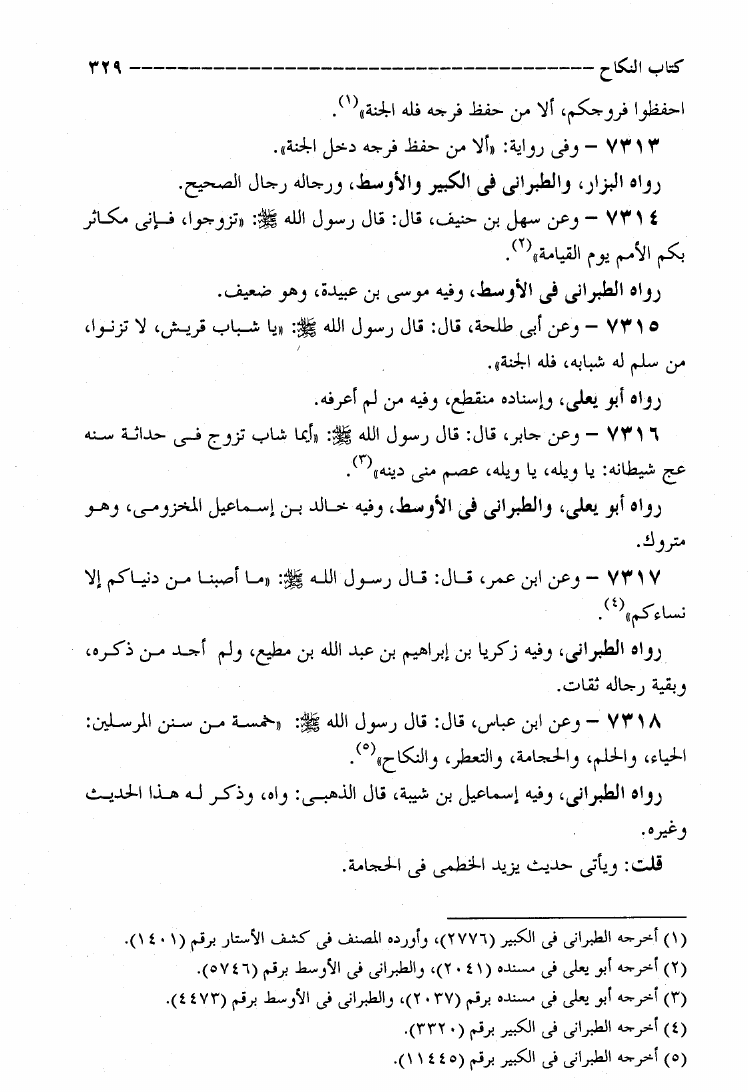 كتاب النكاح ---------------------------------------- ٣٢٩
احفظوا فروجكم، ألا من حفظ فرجه فله الجنة»(١).
٧٣١٣ – وفى رواية: «ألا من حفظ فرجه دخل الجنة».
رواه البزار، والطبرانى فى الكبير والأوسط، ورجاله رجال الصحيح.
٧٣١٤ – وعن سهل بن حنيف، قال: قال رسول الله ﷺ: «تزوجوا، فإنى مكاثر
بكم الأمم يوم القيامة»(٢).
رواه الطبرانى فى الأوسط، وفيه موسى بن عبيدة، وهو ضعيف.
٧٣١٥ – وعن أبى طلحة، قال: قال رسول الله ﷺ: «يا شباب قريش، لا تزنوا،
من سلم له شبابه، فله الجنة».
رواه أبو يعلى، وإسناده منقطع، وفيه من لم أعرفه.
٧٣١٦ – وعن جابر، قال: قال رسول الله ﷺ: «أيما شاب تزوج فى حداثة سنه
عج شيطانه: يا ويله، يا ويله، عصم منى دينه»(٣).
رواه أبو يعلى، والطبرانى فى الأوسط، وفيه خالد بن إسماعيل المخزومى، وهو
متروك.
٧٣١٧ – وعن ابن عمر، قال: قال رسول الله ﷺ: «ما أصبنا من دنياكم إلا
نساءكم»(٤).
رواه الطبرانى، وفيه زكريا بن إبراهيم بن عبد الله بن مطيع، ولم أجد من ذكره،
وبقية رجاله ثقات.
٧٣١٨ – وعن ابن عباس، قال: قال رسول الله ﷺ: «خمسة من سنن المرسلين:
الحياء، والحلم، والحجامة، والتعطر، والنكاح»(٥).
رواه الطبرانى، وفيه إسماعيل بن شيبة، قال الذهبى: واه، وذكر له هذا الحديث
وغيره.
قلت: ويأتى حديث يزيد الخطمى فى الحجامة.
(١) أخرجه الطبرانى فى الكبير (٢٧٧٦)، وأورده المصنف فى كشف الأستار برقم (١٤٠١).
(٢) أخرجه أبو يعلى فى مسنده (٢٠٤١)، والطبرانى فى الأوسط برقم (٥٧٤٦).
(٣) أخرجه أبو يعلى فى مسنده برقم (٢٠٣٧)، والطبرانى فى الأوسط برقم (٤٤٧٣).
(٤) أخرجه الطبرانى فى الكبير برقم (٣٣٢٠).
(٥) أخرجه الطبرانى فى الكبير برقم (١١٤٤٥).